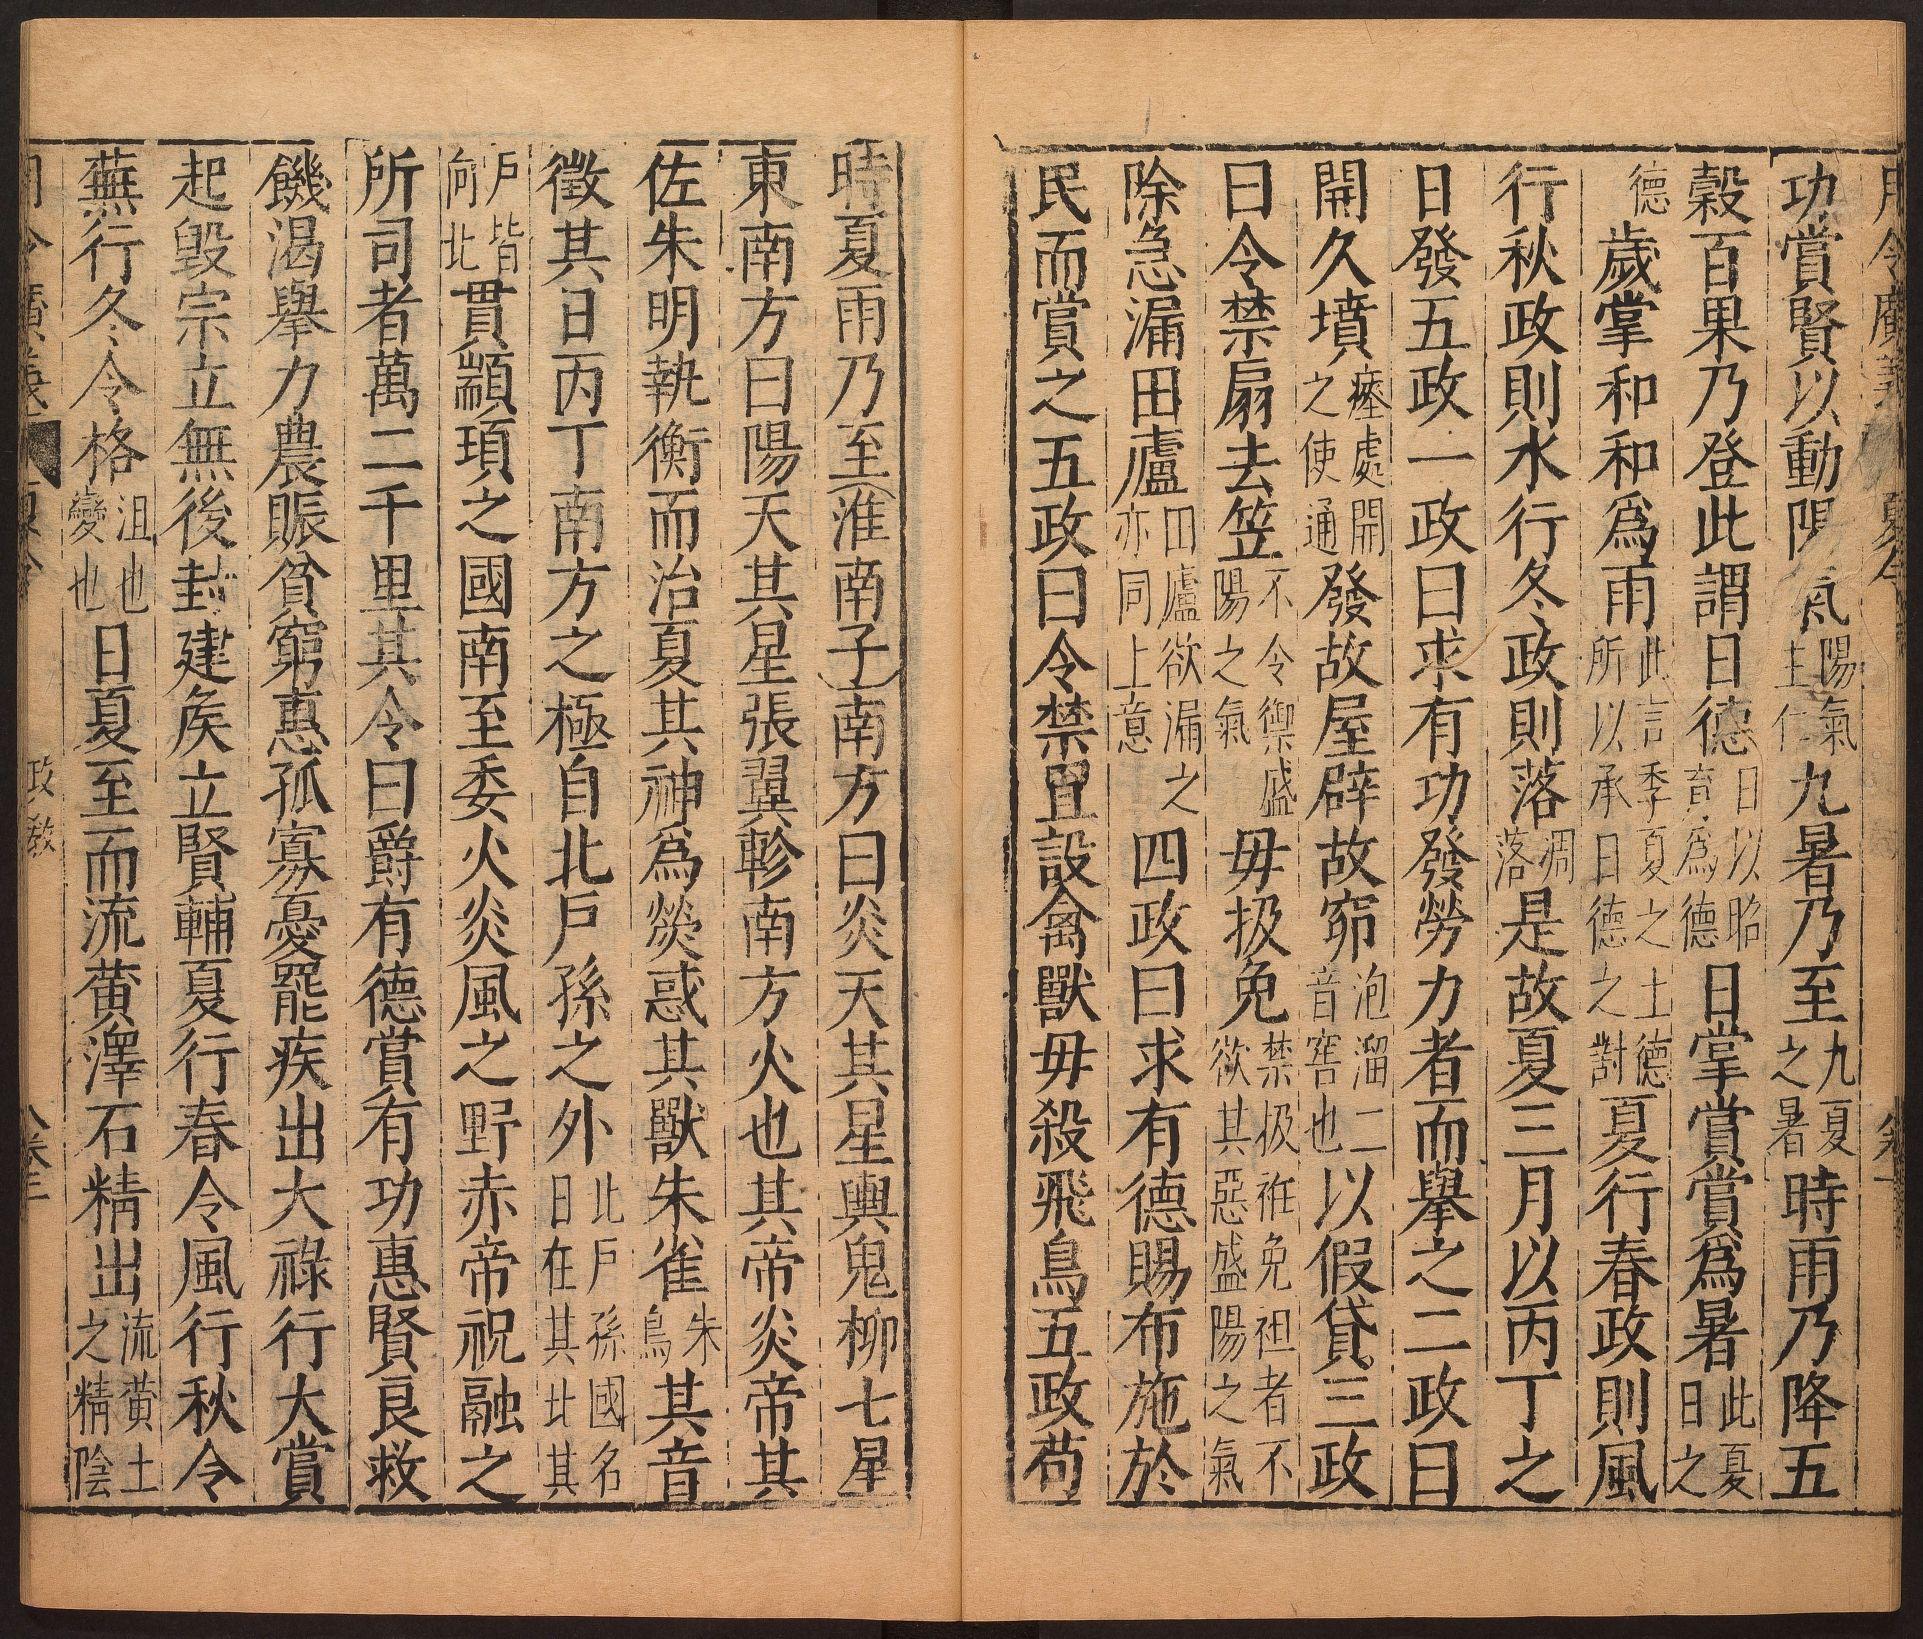 月令廣義 夏令
功賞賢以動陽氣陽氣主仁九暑乃至九夏之暑時雨乃降五
穀百果乃登此謂日德日以昭育爲德日掌賞賞爲暑此夏日之
德歲掌和和爲雨此言季夏之土德所以承日德之對夏行春政則風
行秋政則水行冬政則落凋落是故夏三月以丙丁之
日發五政一政曰求有功發勞力者而舉之二政曰
開久墳瘞處開之使通發故屋辟故窌泡溜二音窖也以假貸三政
曰令禁扇去笠不令禦盛陽之氣毋扱免禁扱袵免袒者不欲其惡盛陽之氣
除急漏田廬田廬欲漏之亦同上意四政曰求有德賜布施於
民而賞之五政曰令禁罝設禽獸毋殺飛鳥五政苟
時夏雨乃至(淮南子)南方曰炎天其星輿鬼柳七星
東南方曰陽天其星張翼軫南方火也其帝炎帝其
佐朱明執衡而治夏其神爲熒惑其獸朱雀朱鳥其音
徵其日丙丁南方之極自北戶孫之外北戶孫國名日在其北其
戶皆向北貫顓頊之國南至委火炎風之野赤帝祝融之
所司者萬二千里其令曰爵有德賞有功惠賢良救
饑渴舉力農賑貧窮惠孤寡憂罷疾出大祿行大賞
起毀宗立無後封建矦立賢輔夏行春令風行秋令
蕪行冬令格沮也變也日夏至而流黄澤石精出流黄土之精陰
政教
卷三